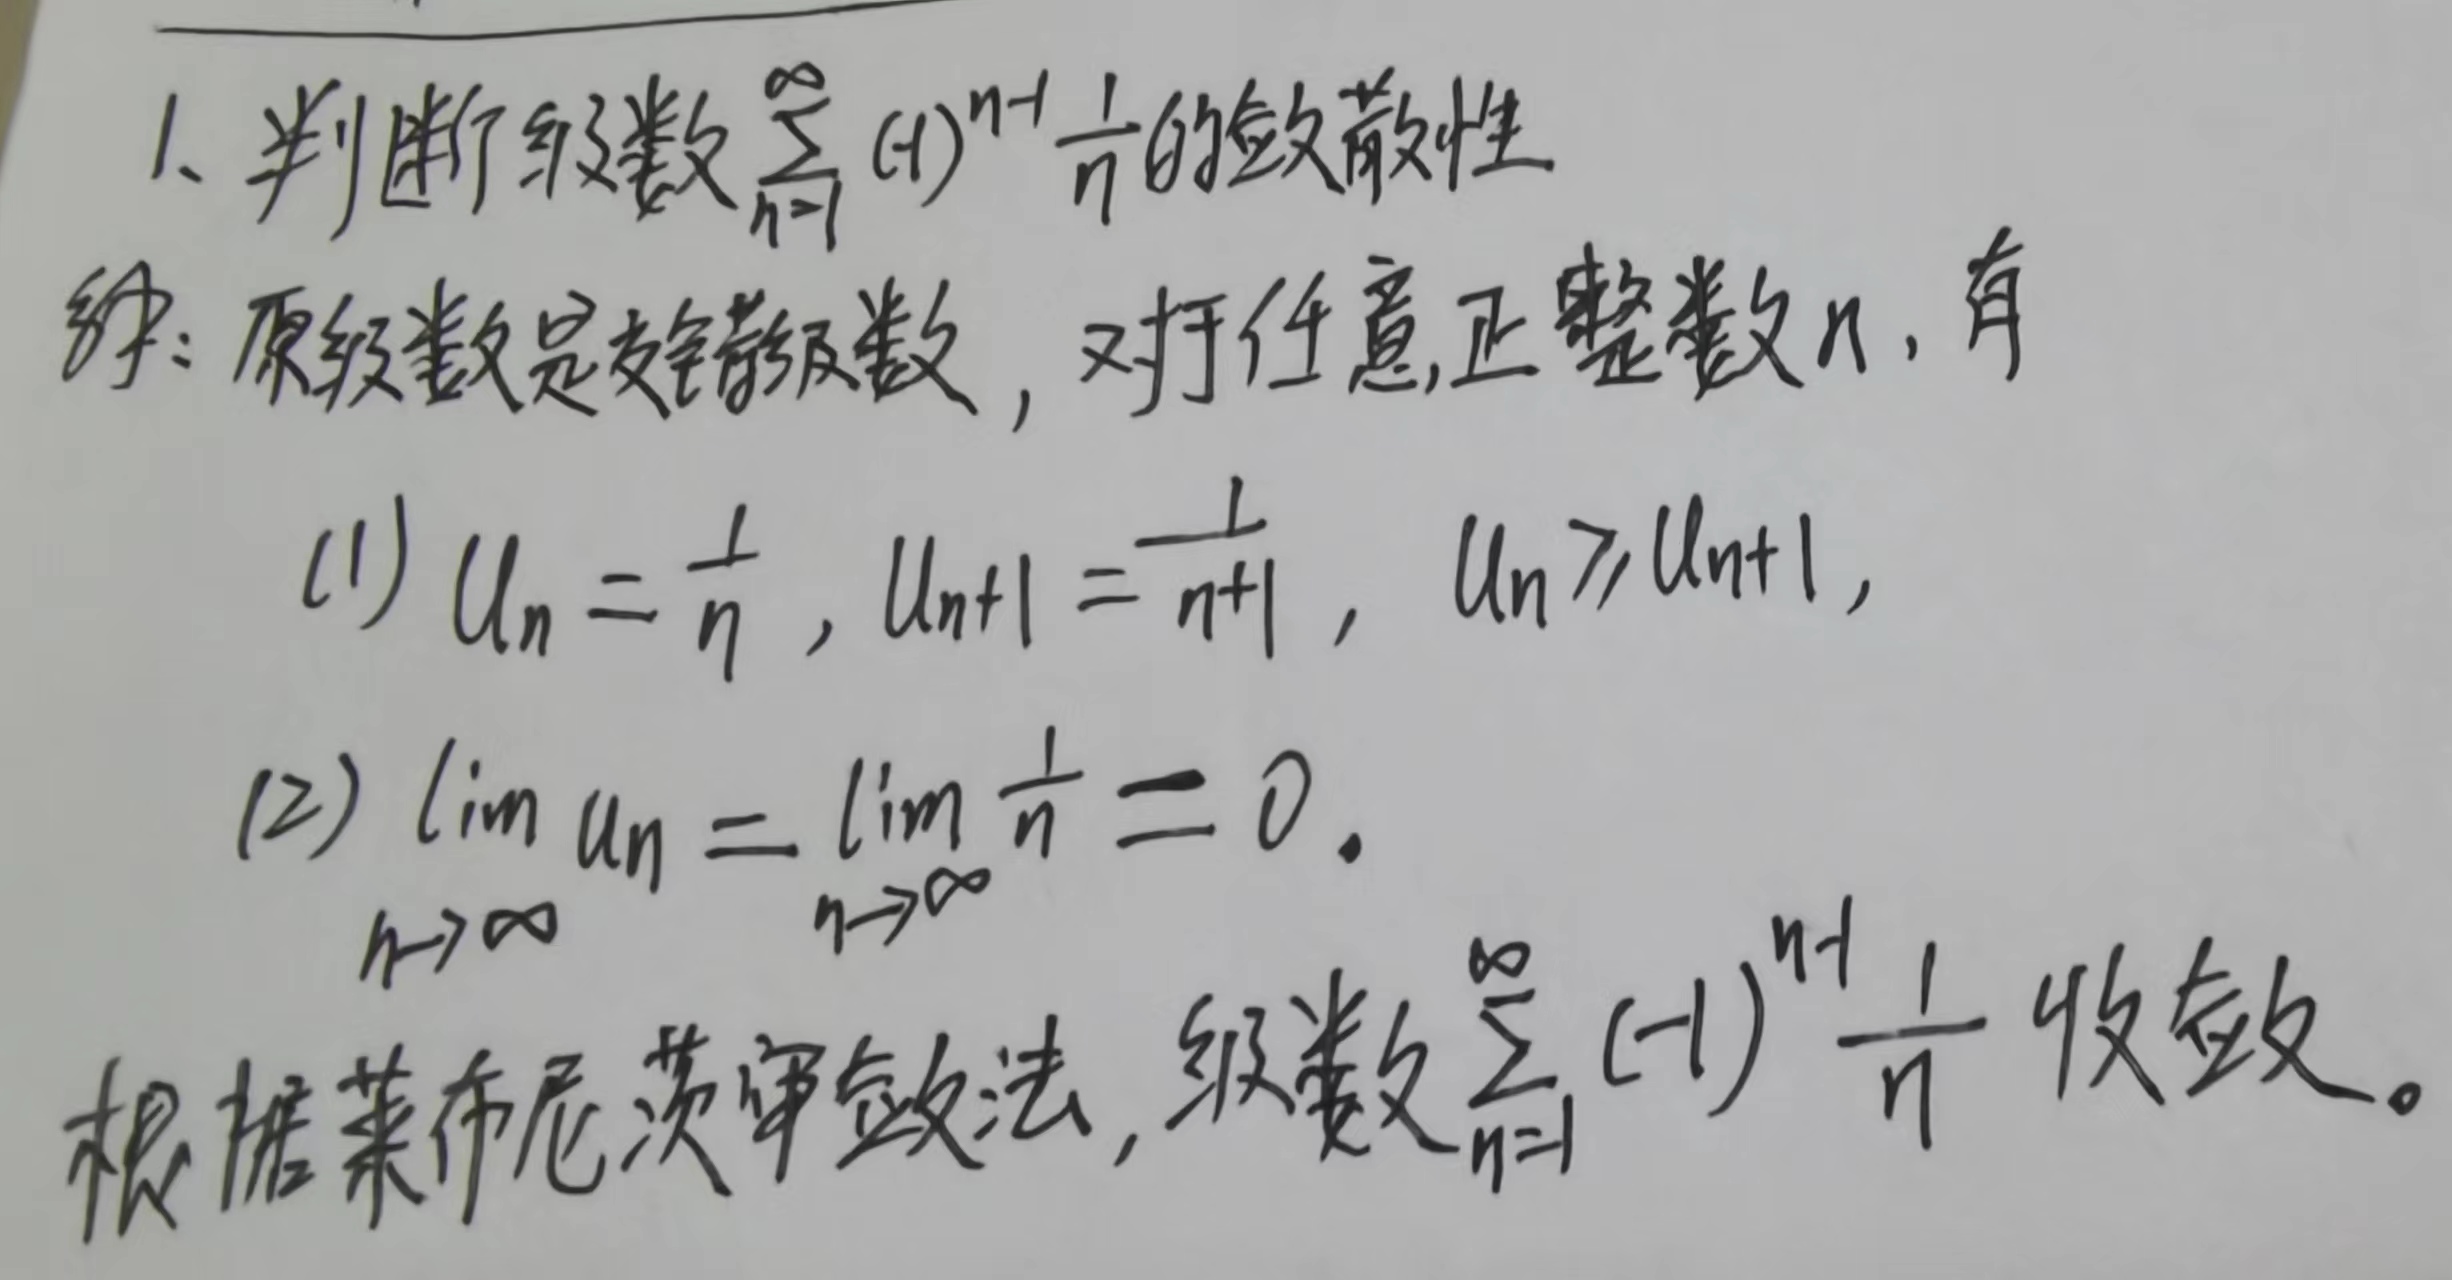 1、判断级数∑_{n=1}^{∞} (-1)^{n-1} 1/n 的敛散性
解：原级数是交错级数，对于任意正整数n，有
(1) Un = 1/n , Un+1 = 1/(n+1) , Un ⩾ Un+1 ,
(2) lim_{n→∞} un = lim_{n→∞} 1/n = 0 .
根据莱布尼茨审敛法，级数∑_{n=1}^{∞} (-1)^{n-1} 1/n 收敛。